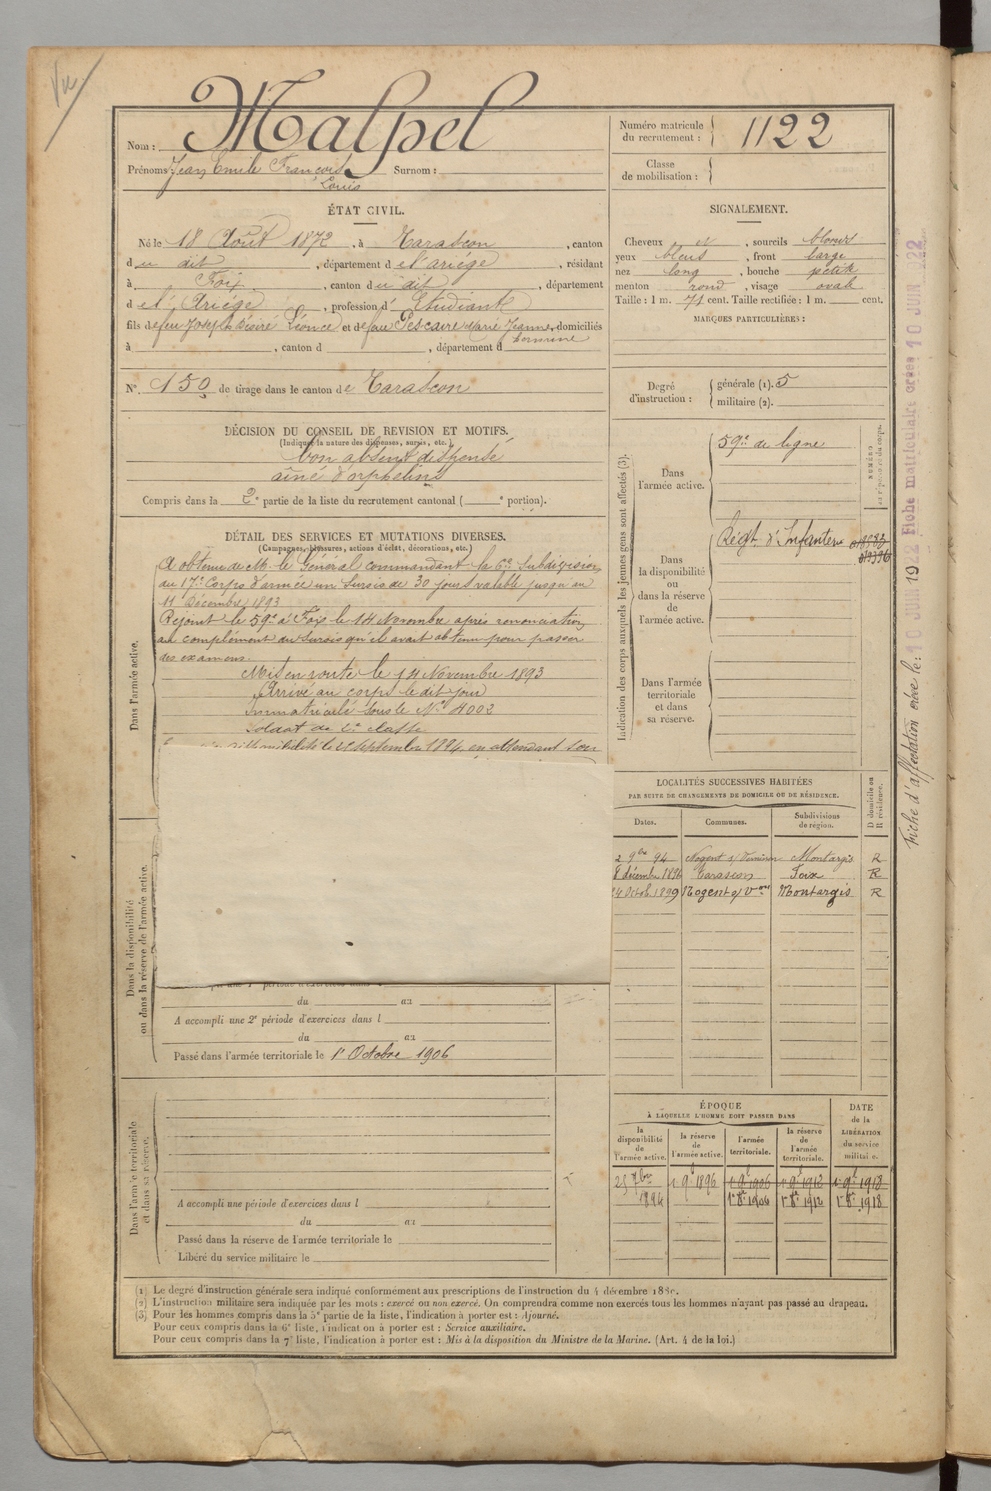 Vu
Nom : Malpel
Prénoms Jean Emile François
Louis
Surnom :
Numéro matricule
du recrutement : 1122
Classe
de mobilisation :
ÉTAT CIVIL.
Né le 18 Août 1872, à Tarascon, canton
du dit, département de l'ariège, résidant
à Foix, canton du dit, département
de l'Ariège, profession d' Etudiant
fils de feu Joseph Désiré Léonce et de feue Pescaire Marie Jeanne, domiciliés
à , canton d , département d
N° 150 de tirage dans le canton de Tarascon
DÉCISION DU CONSEIL DE REVISION ET MOTIFS.
(Indiquer la nature des dispenses, sursis, etc.)
bon absent dispensé
aîné d'orphelins
Compris dans la 2e partie de la liste du recrutement cantonal ( e portion).
DÉTAIL DES SERVICES ET MUTATIONS DIVERSES.
(Campagnes, blessures, actions d'éclat, décorations, etc.)
A obtenu de M. le Général commandant la 6e Subdivision
du 17e Corps d'armée un sursis de 30 jours valable jusqu'au
11 Décembre 1893
Rejoint le 59e à Foix le 14 Novembre après renonciation
au complément du sursis qu'il avait obtenu pour passer
des examens.
Mis en route le 14 Novembre 1893
Arrivé au corps le dit jour
Immatriculé sous le N° 4002
Soldat de 2e classe
disponibilité le septembre 1894, en attendant son
Dans l'armée active.
Dans la disponibilité
ou dans la réserve de l'armée active.
du au
A accompli une 2e période d'exercices dans l
du au
Passé dans l'armée territoriale le 1er Octobre 1906
Dans l'armée territoriale
et dans sa réserve.
A accompli une période d'exercices dans l
du au
Passé dans la réserve de l'armée territoriale le
Libéré du service militaire le
SIGNALEMENT.
Cheveux et , sourcils blonds
yeux bleus , front large
nez long , bouche petite
menton rond , visage ovale
Taille : 1 m. 71 cent. Taille rectifiée : 1 m. cent.
MARQUES PARTICULIÈRES :
Degré
d'instruction :
générale (1). 5
militaire (2).
Indication des corps auxquels les jeunes gens sont affectés (3).
Dans
l'armée active.
59e de ligne
NUMÉRO
Dans
la disponibilité
ou
dans la réserve
de
l'armée active.
Régt d'Infanterie
Dans l'armée
territoriale
et dans
sa réserve.
LOCALITÉS SUCCESSIVES HABITÉES
PAR SUITE DE CHANGEMENTS DE DOMICILE OU DE RÉSIDENCE.
D domicile ou
R résidence.
Dates. Communes. Subdivisions
de région.
2 9bre 94 Nogent s/ Vernisson Montargis R
8 décembre 1896 Tarascon Foix R
24 Octob. 1899 Nogent s/ Von Montargis R
ÉPOQUE
À LAQUELLE L'HOMME DOIT PASSER DANS
DATE
de la
LIBÉRATION
du service
militaire.
la
disponibilité
de
l'armée active.
la réserve
de
l'armée active.
l'armée
territoriale.
la réserve
de
l'armée
territoriale.
25 7bre 1er 9bre 1896 1er 9bre 1906 1er 9bre 1912 1er 9bre 1918
1894 1er 8bre 1906 1er 8bre 1912 1er 8bre 1918
Fiche d'affectation créée le : 10 JUIN 1922 Fiche matriculaire créée 10 JUIN 1922
(1) Le degré d'instruction générale sera indiqué conformément aux prescriptions de l'instruction du 4 décembre 1889.
(2) L'instruction militaire sera indiquée par les mots : exercé ou non exercé. On comprendra comme non exercés tous les hommes n'ayant pas passé au drapeau.
(3) Pour les hommes compris dans la 5e partie de la liste, l'indication à porter est : Ajourné.
Pour ceux compris dans la 6e liste, l'indication à porter est : Service auxiliaire.
Pour ceux compris dans la 7e liste, l'indication à porter est : Mis à la disposition du Ministre de la Marine. (Art. 4 de la loi.)